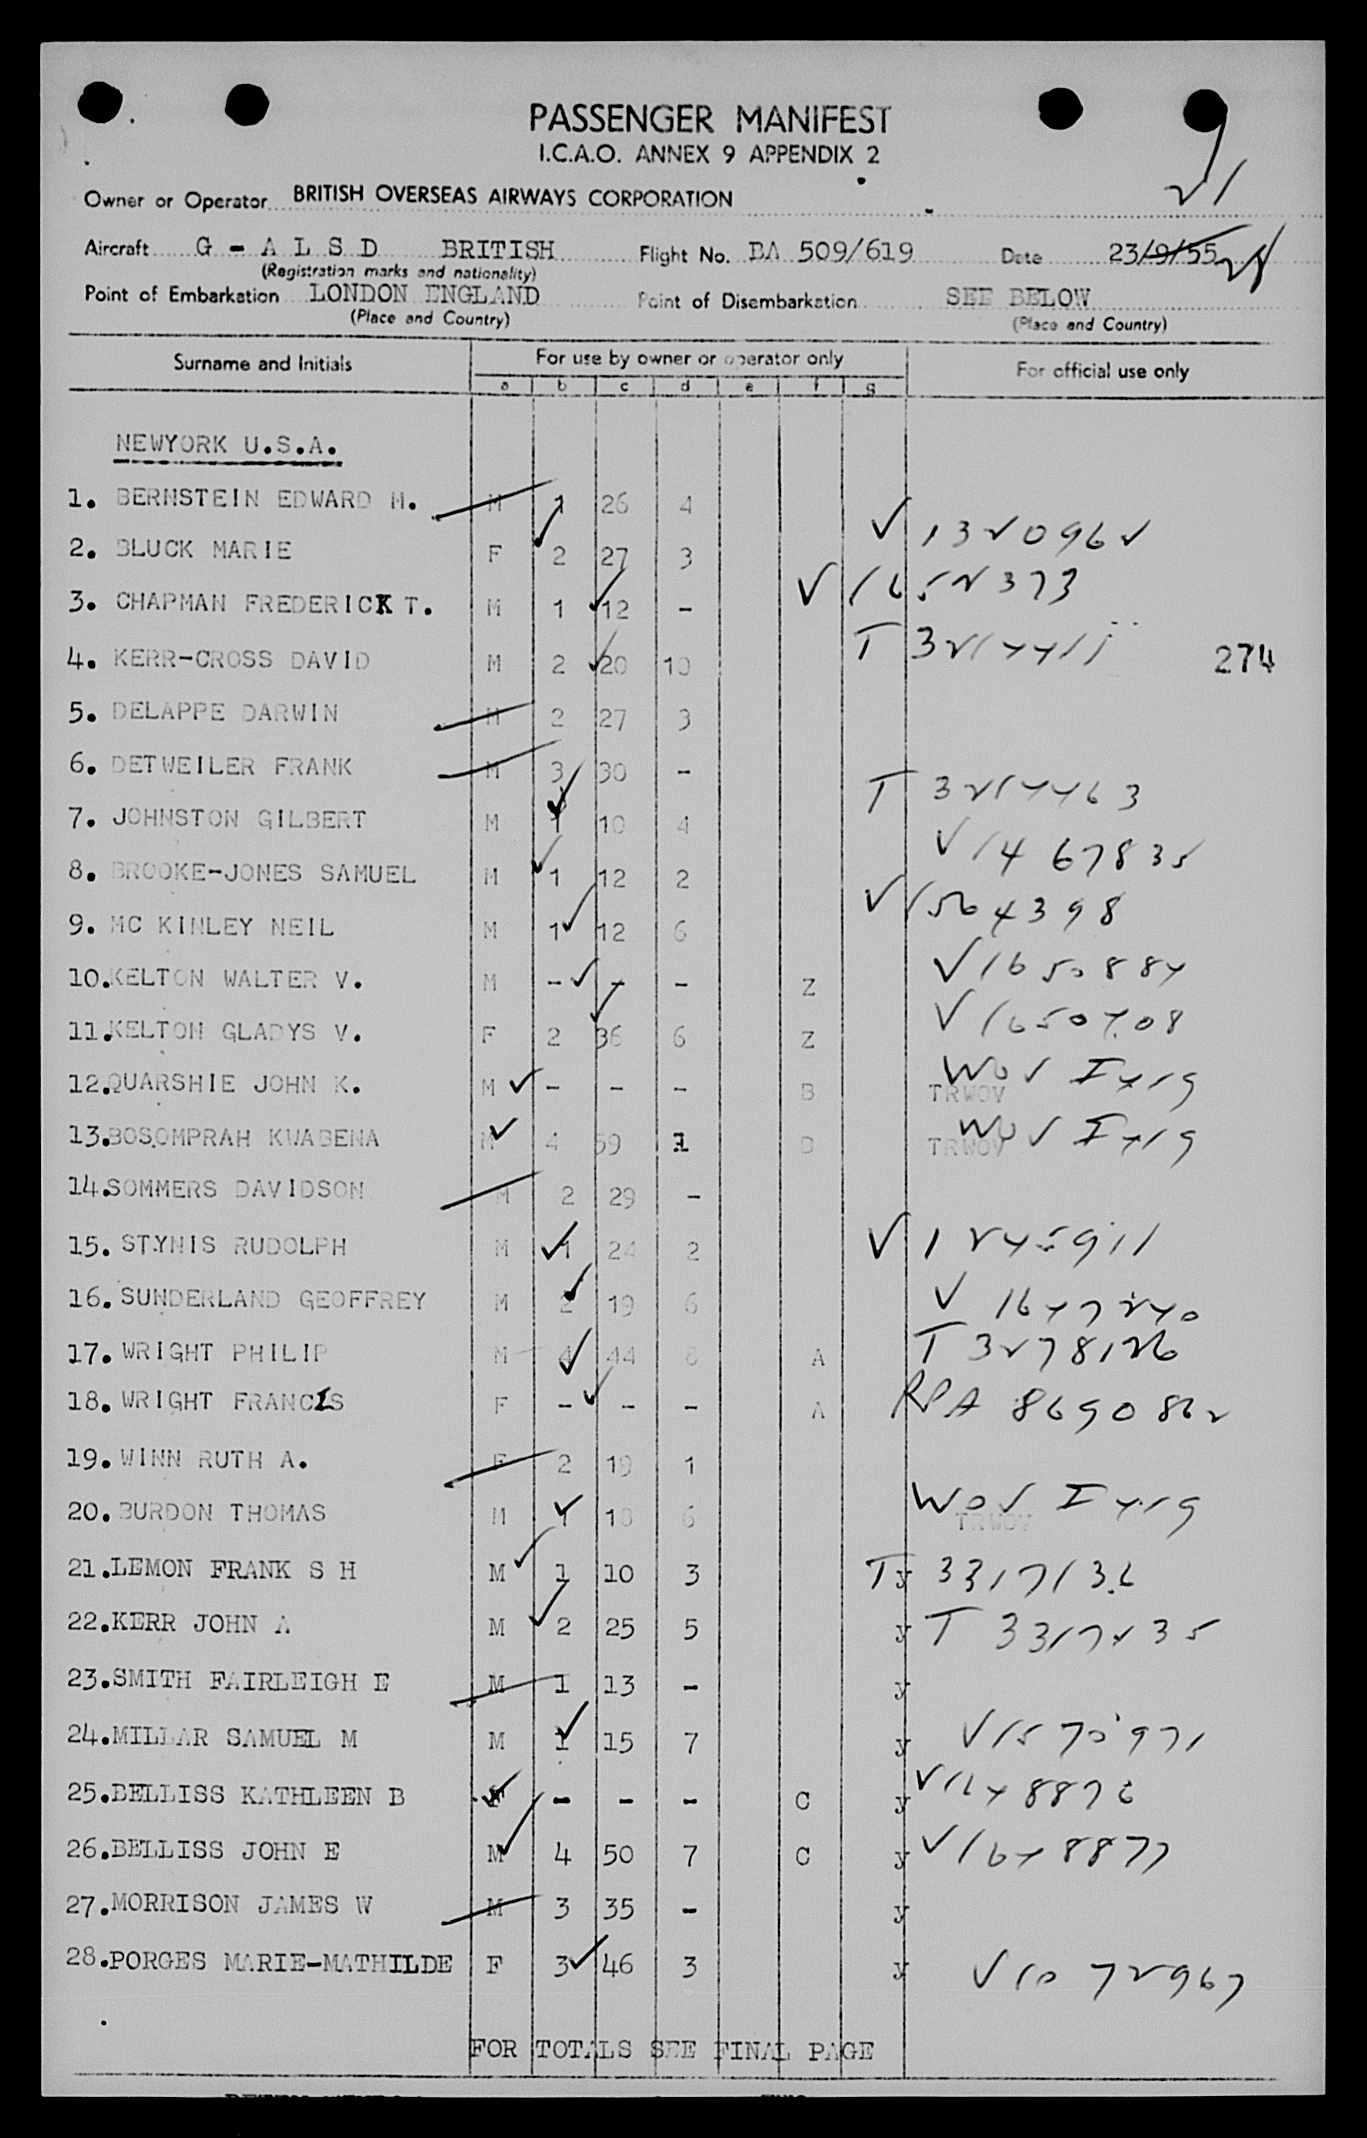 PASSENGER MANIFEST
I.C.A.O. ANNEX 9 APPENDIX 2
21
Owner or Operator BRITISH OVERSEAS AIRWAYS CORPORATION
Aircraft G - A L S D BRITISH Flight No. BA 509/619 Date 23/9/55
(Registration marks and nationality)
Point of Embarkation LONDON ENGLAND Point of Disembarkation SEE BELOW
(Place and Country) (Place and Country)
Surname and Initials For use by owner or operator only For official use only
a b c d e f g
NEWYORK U.S.A.
1. BERNSTEIN EDWARD M. M 1 26 4
2. BLUCK MARIE F 2 27 3 V 1320962
3. CHAPMAN FREDERICK T. M 1 12 - V 1652373
4. KERR-CROSS DAVID M 2 20 10 T 274
5. DELAPPE DARWIN M 2 27 3
6. DETWEILER FRANK M 3 30 -
7. JOHNSTON GILBERT M 1 10 4 T 3214463
8. BROOKE-JONES SAMUEL M 1 12 2 V 1467835
9. MC KINLEY NEIL M 1 12 6 V 1564398
10. KELTON WALTER V. M - - - Z V 1650884
11. KELTON GLADYS V. F 2 36 6 Z V 1650408
12. QUARSHIE JOHN K. M - - - B TRWOV
13. BOSOMPRAH KWABENA M 4 59 1 D TRWOV
14. SOMMERS DAVIDSON M 2 29 -
15. STYNIS RUDOLPH M 1 24 2 V 1245911
16. SUNDERLAND GEOFFREY M 2 19 6 V 1647240
17. WRIGHT PHILIP M 4 44 8 A T 3278126
18. WRIGHT FRANCIS F - - - A RPA 8690862
19. WINN RUTH A. F 2 19 1
20. BURDON THOMAS M 1 18 6 TRWOV
21. LEMON FRANK S H M 1 10 3 y T 3317136
22. KERR JOHN A M 2 25 5 y T 3317235
23. SMITH FAIRLEIGH E M 1 13 - y
24. MILLAR SAMUEL M M 1 15 7 y V 1570971
25. BELLISS KATHLEEN B F - - - C y V 1648876
26. BELLISS JOHN E M 4 50 7 C y V 1648877
27. MORRISON JAMES W M 3 35 - y
28. PORGES MARIE-MATHILDE F 3 46 3 y V 1072967
FOR TOTALS SEE FINAL PAGE